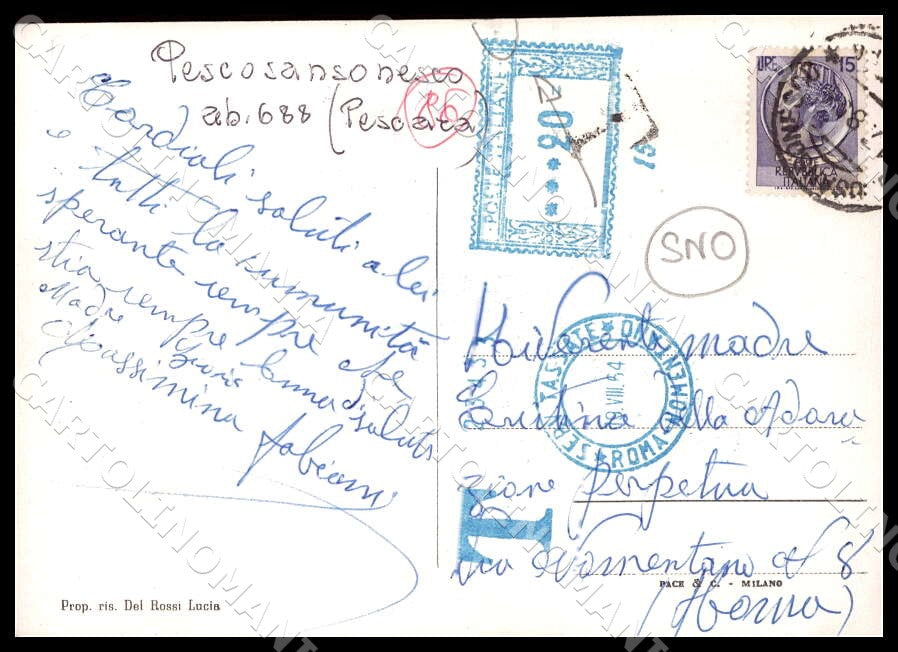 Pescosansonesco
ab. 688 (Pescara)
R6
Cordiali saluti a lei
e tutti la cumunità
sperante sempre che
stia sempre bene saluti
Madre
Fabiani
POSTE ITALIANE
***20
T
15
LIRE 15
REPUBBLICA
ITALIANA
SNO
Riverenta madre
alla Adora
zione Perpetua
via Nomentano N 8
(Roma)
SERV. TASSATE ROMA NOMENTANO
VIII.54
T
PACE & C. - MILANO
Prop. ris. Del Rossi Lucia
CARTOLINOMANT